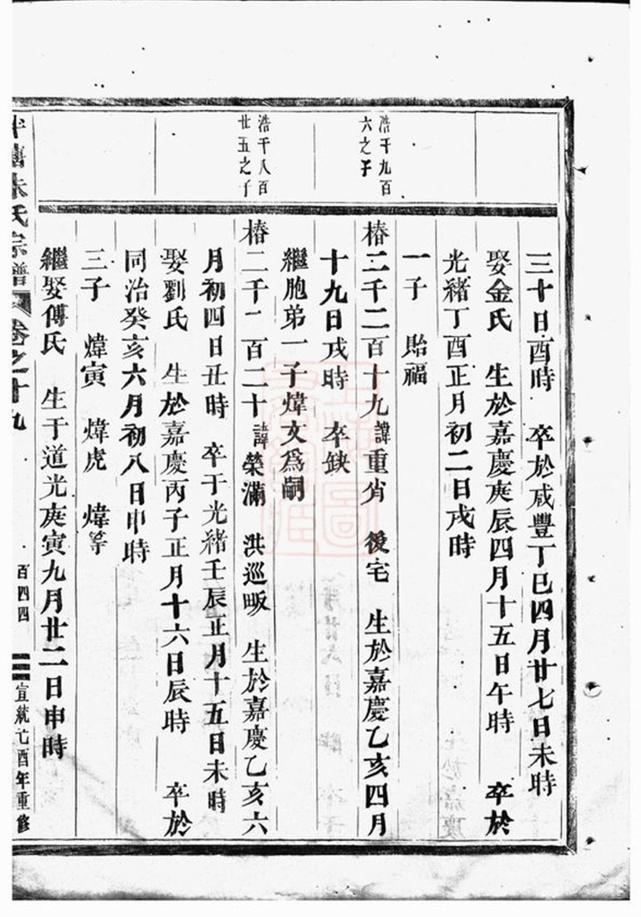 三十日酉時　卒於咸豐丁巳四月廿七日未時
娶金氏　生於嘉慶庚辰四月十五日午時　卒於
光緒丁酉正月初二日戌時
一子　貽福
浩千九百
六之子
椿二千二百十九諱重肖　後宅　生於嘉慶乙亥四月
十九日戌時　卒缺
繼胞弟一子煒文爲嗣
浩千八百
廿五之子
椿二千二百二十諱榮滿　洪巡畈　生於嘉慶乙亥六
月初四日丑時　卒于光緒壬辰正月十五日未時
娶劉氏　生於嘉慶丙子正月十六日辰時　卒於
同治癸亥六月初八日申時
三子　煒寅　煒虎　煒等
繼娶傅氏　生于道光庚寅九月廿二日申時
朱氏宗譜　卷之十九　百四四　宣統己酉年重修